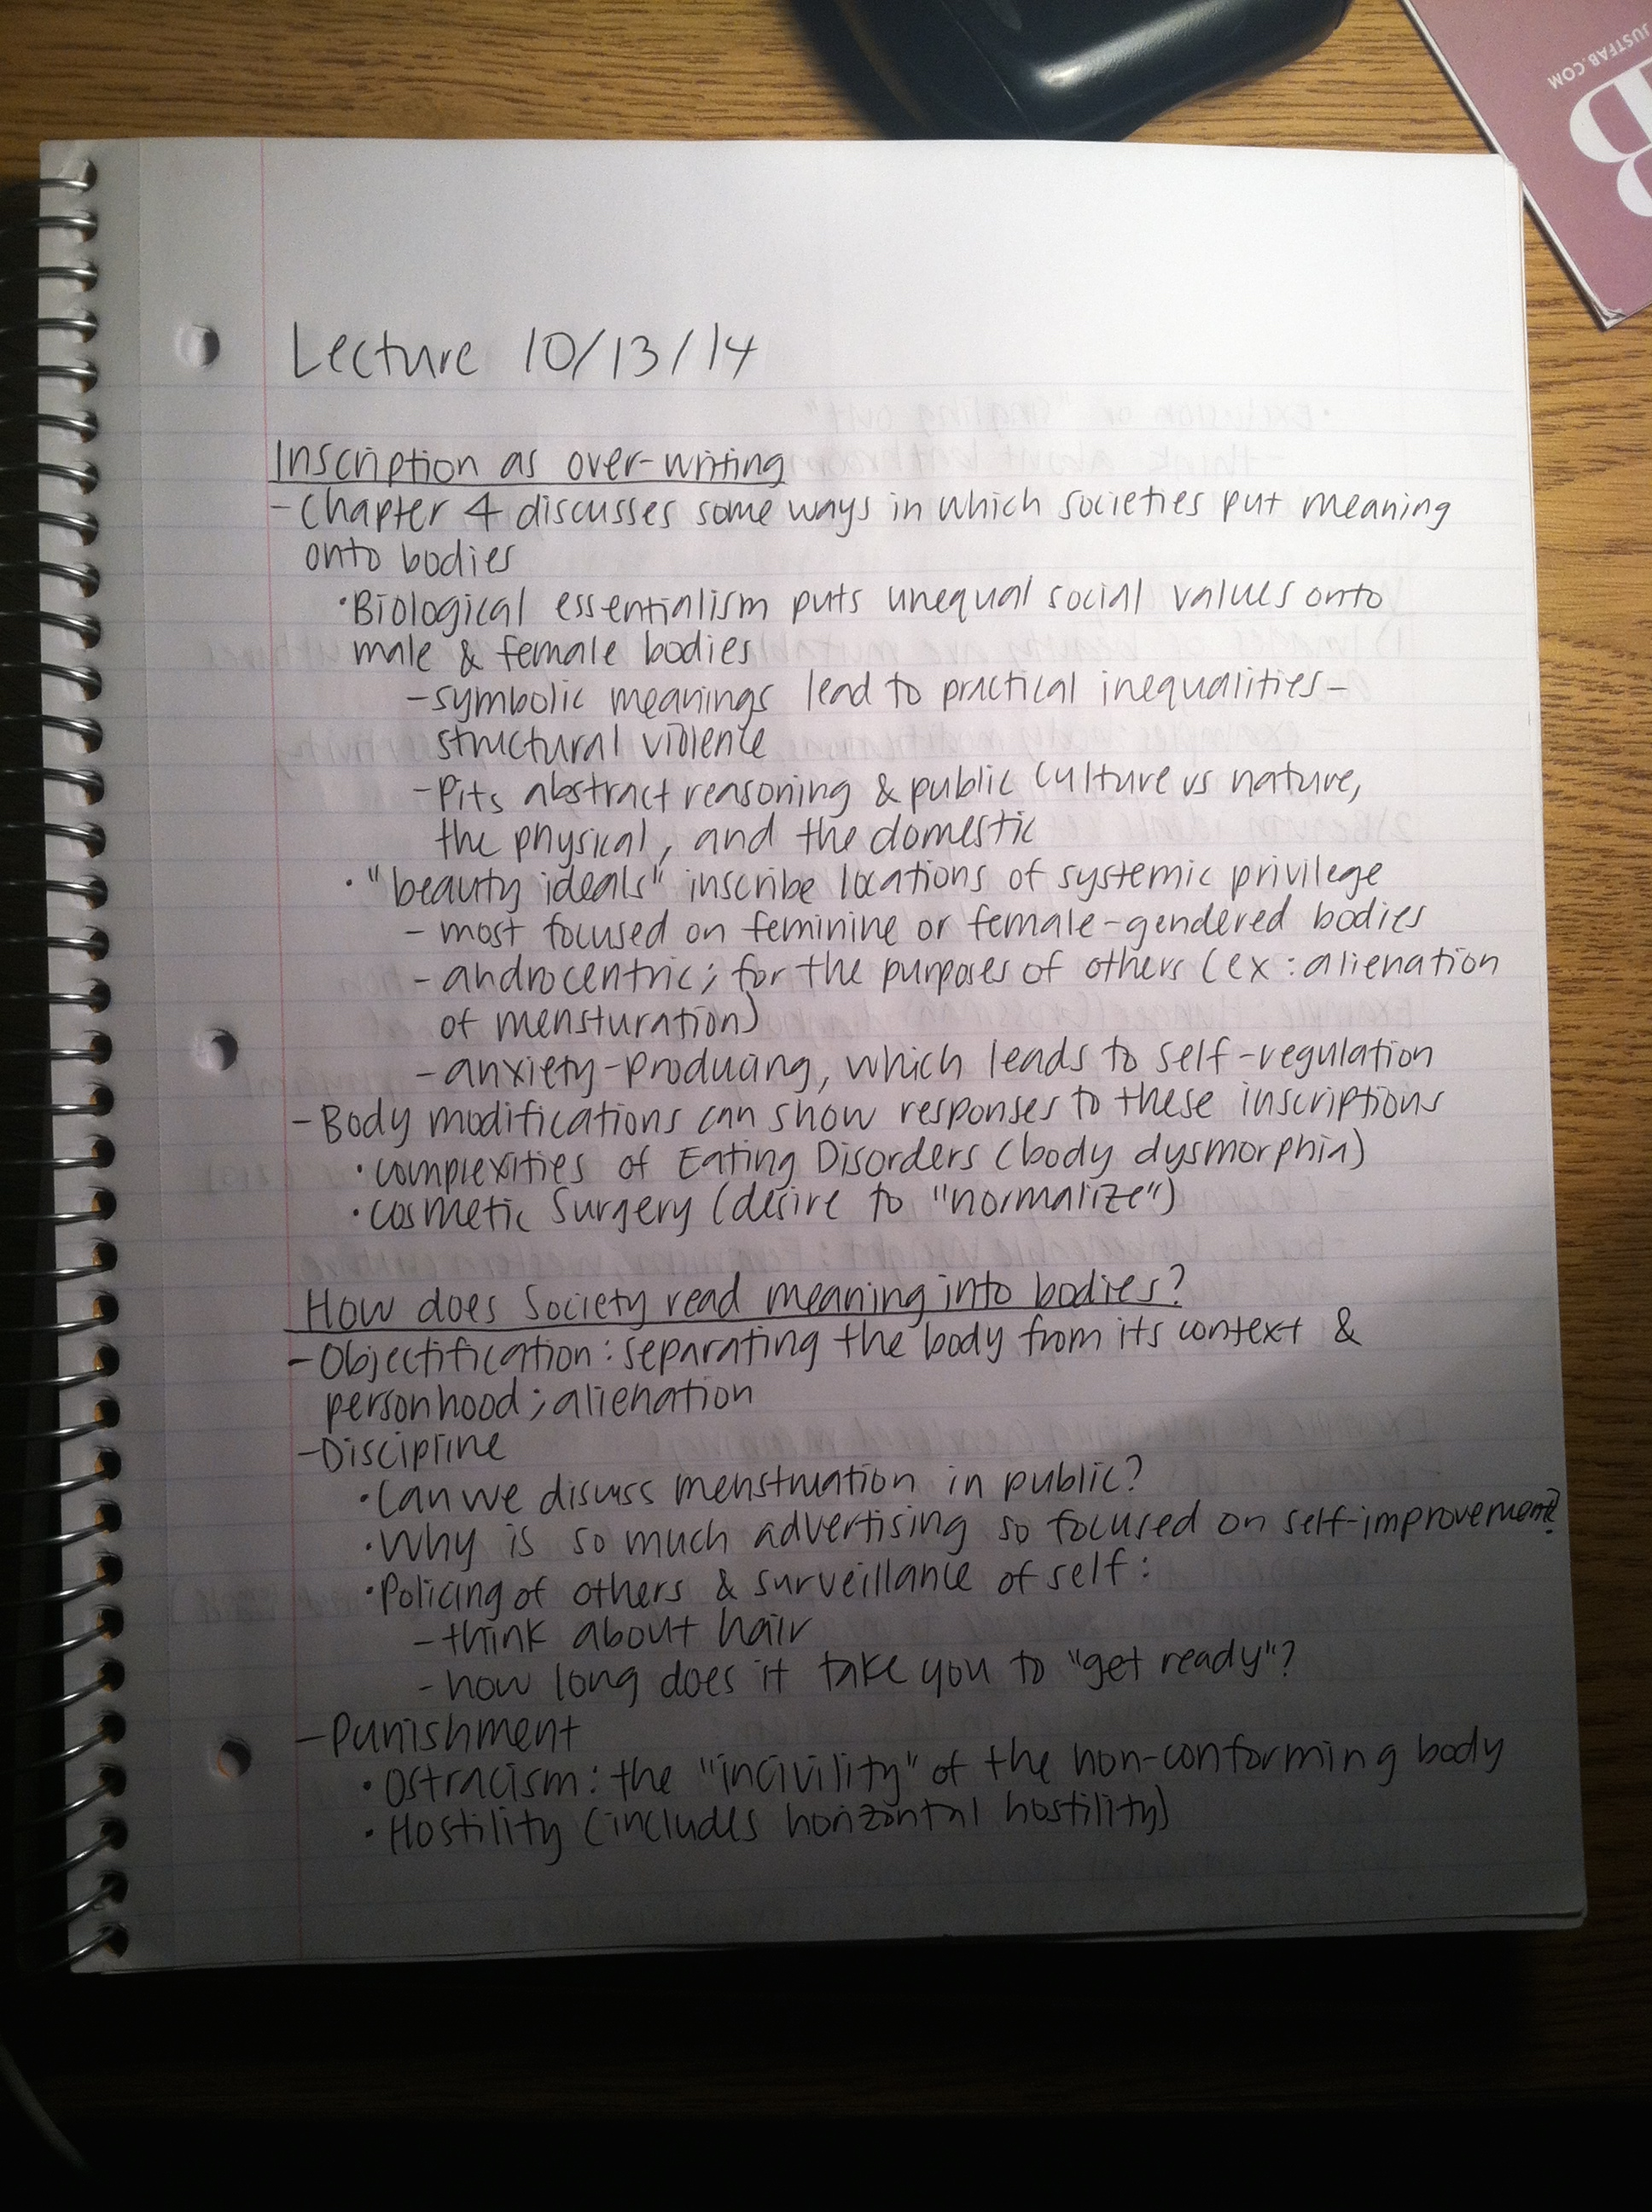 JUSTFAB.COM
B
Lecture 10/13/14
Inscription as over-writing
- Chapter 4 discusses some ways in which societies put meaning
onto bodies
• Biological essentialism puts unequal social values onto
male & female bodies
- symbolic meanings lead to practical inequalities -
structural violence
- Pits abstract reasoning & public culture vs nature,
the physical, and the domestic
• "beauty ideals" inscribe locations of systemic privilege
- most focused on feminine or female-gendered bodies
- androcentric; for the purposes of others (ex: alienation
of mensturation)
- anxiety-producing, which leads to self-regulation
- Body modifications can show responses to these inscriptions
• complexities of Eating Disorders (body dysmorphia)
• cosmetic surgery (desire to "normalize")
How does society read meaning into bodies?
- Objectification: separating the body from its context &
personhood; alienation
- Discipline
• Can we discuss menstruation in public?
• Why is so much advertising so focused on self-improvement?
• Policing of others & surveillance of self:
- think about hair
- how long does it take you to "get ready"?
- Punishment
• Ostracism: the "incivility" of the non-conforming body
• Hostility (includes horizontal hostility)